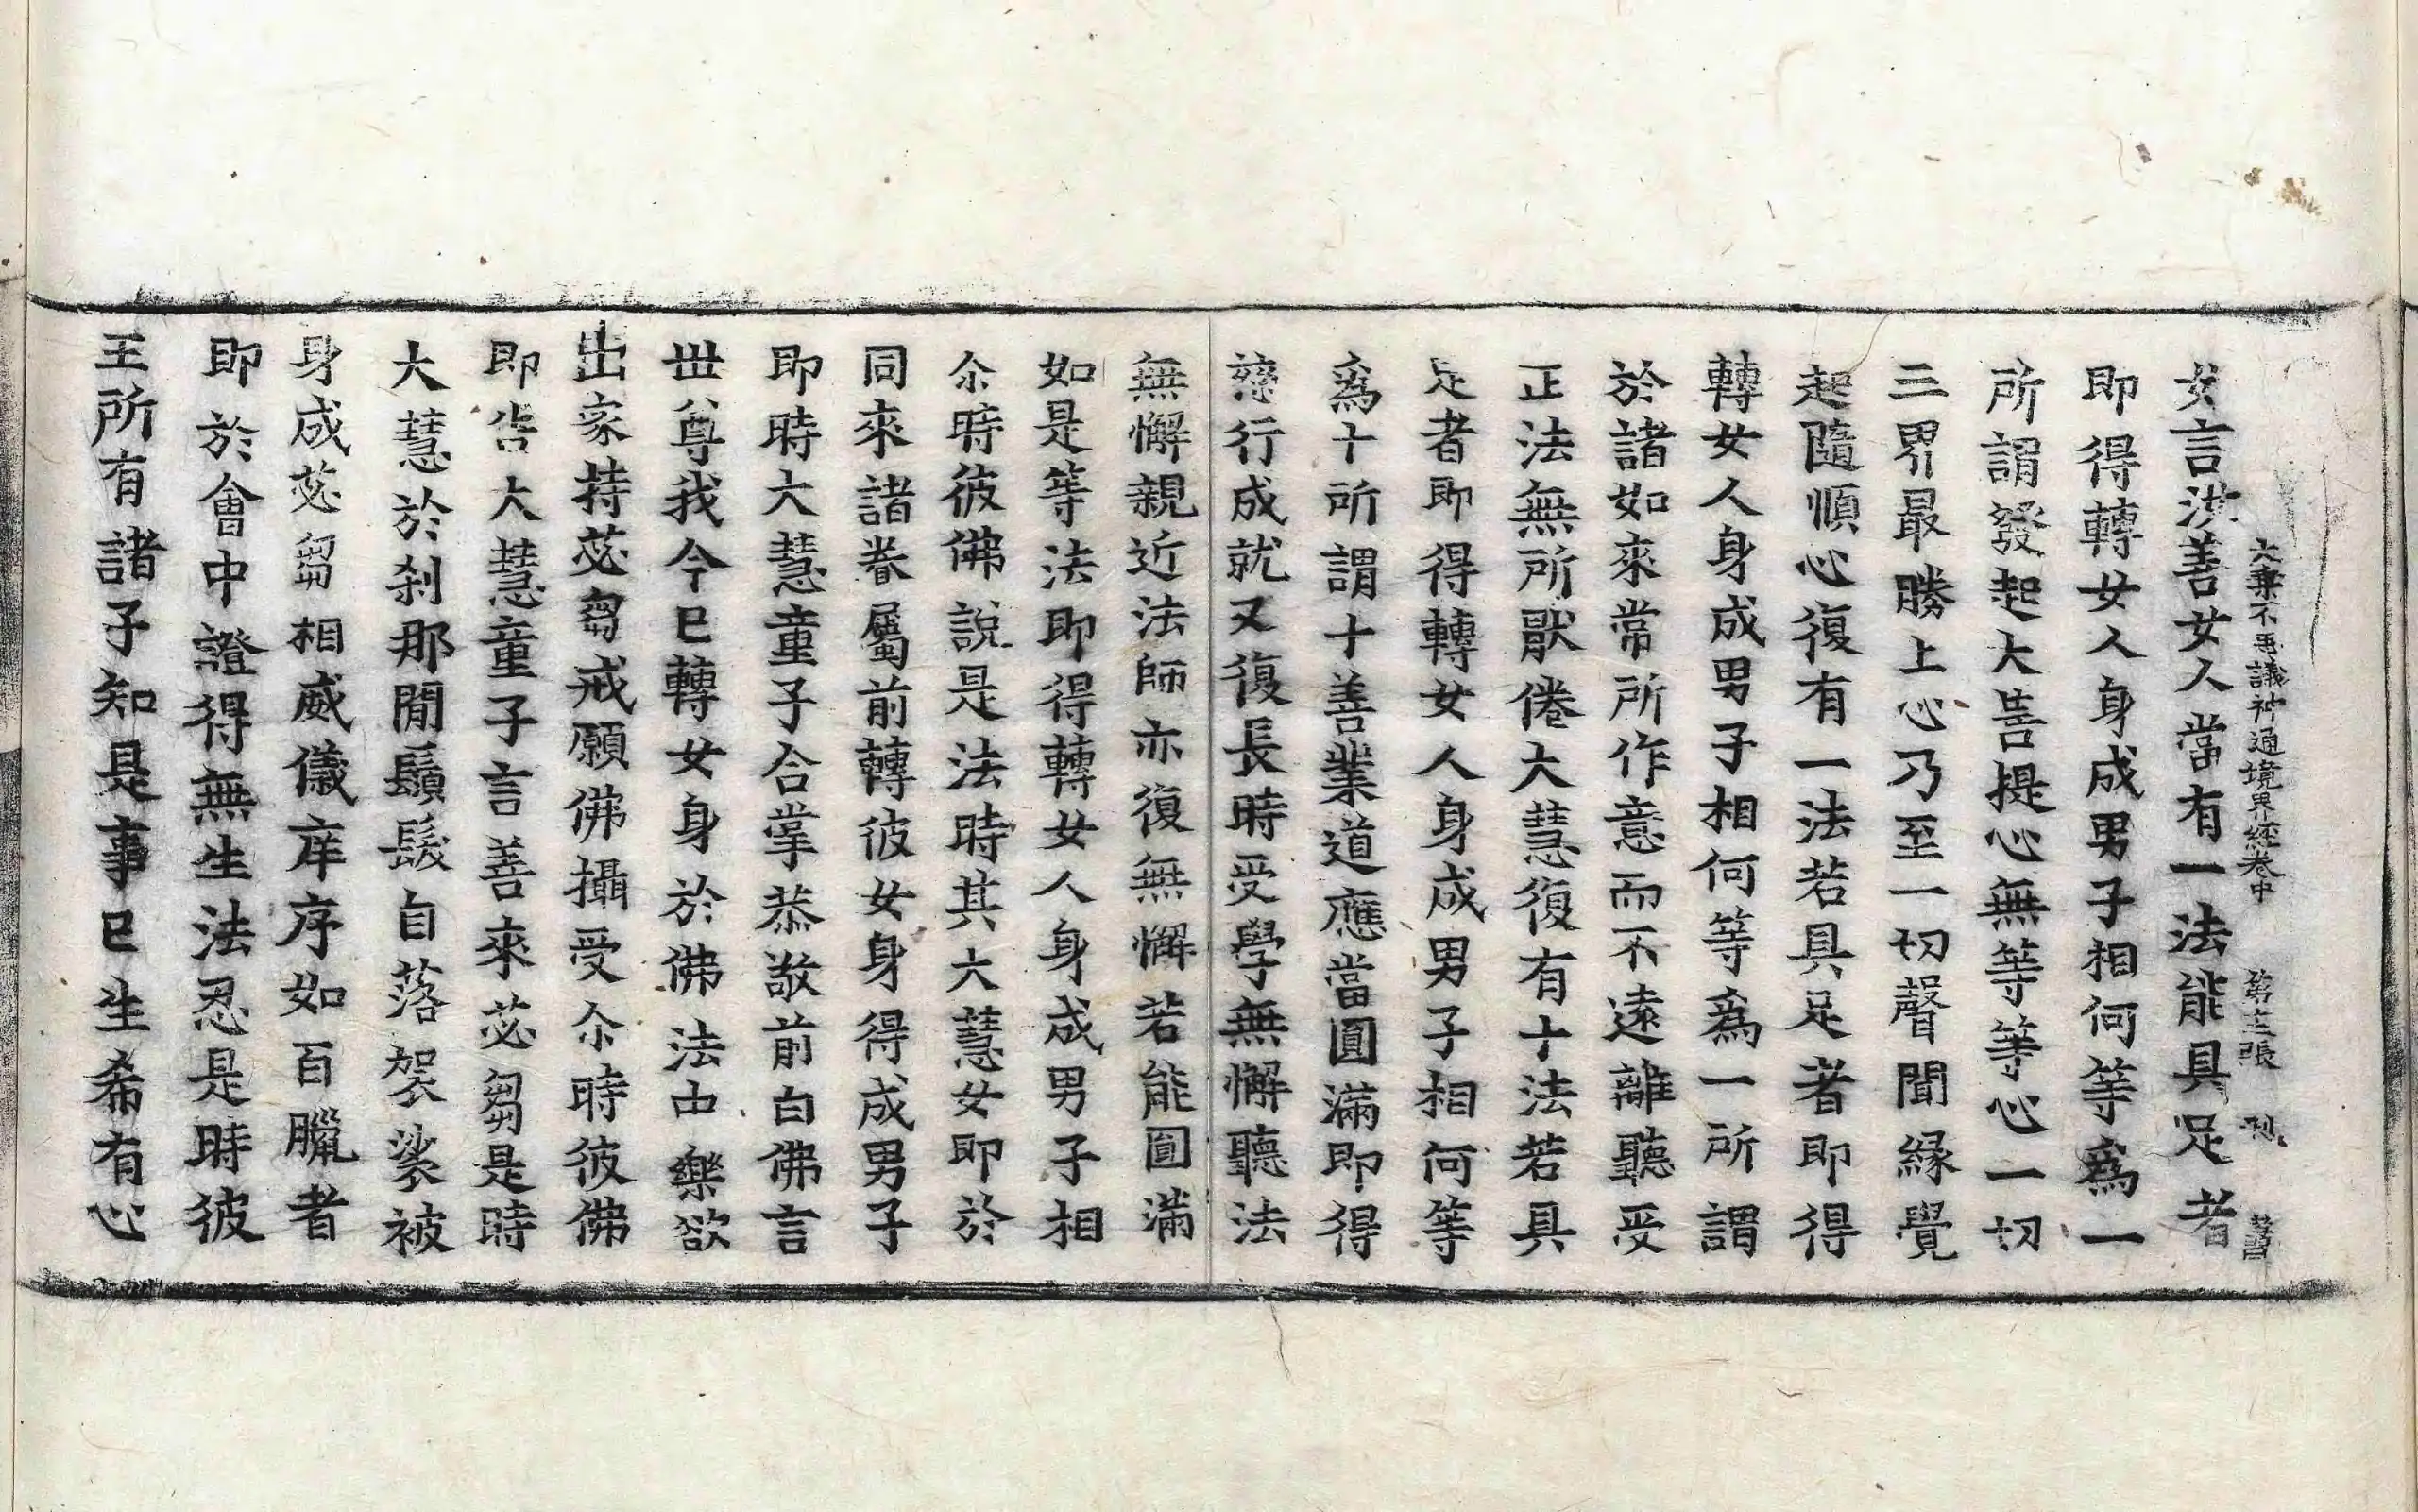 女言汝善女人當有一法能具足者
大乘不思議神通境界經卷中 第 張
即得轉女人身成男子相何等爲一
所謂發起大菩提心無等等心一切
三界最勝上心乃至一切聲聞緣覺
起隨順心復有一法若具足者即得
轉女人身成男子相何等爲一所謂
於諸如來常所作意而不遠離聽受
正法無所猒倦大慧復有十法若具
足者即得轉女人身成男子相何等
爲十所謂十善業道應當圓滿即得
慈行成就又復長時受學無懈聽法
無懈親近法師亦復無懈若能圓滿
如是等法即得轉女人身成男子相
尒時彼佛說是法時其大慧女即於
同來諸眷屬前轉彼女身得成男子
即時大慧童子合掌恭敬前白佛言
丗尊我今已轉女身於佛法中樂欲
出家持苾芻戒願佛攝受尒時彼佛
即告大慧童子言善來苾芻是時
大慧於刹那閒鬚髮自落袈裟被
身成苾芻相威儀庠序如百臘者
即於會中證得無生法忍是時彼
王所有諸子知是事已生希有心